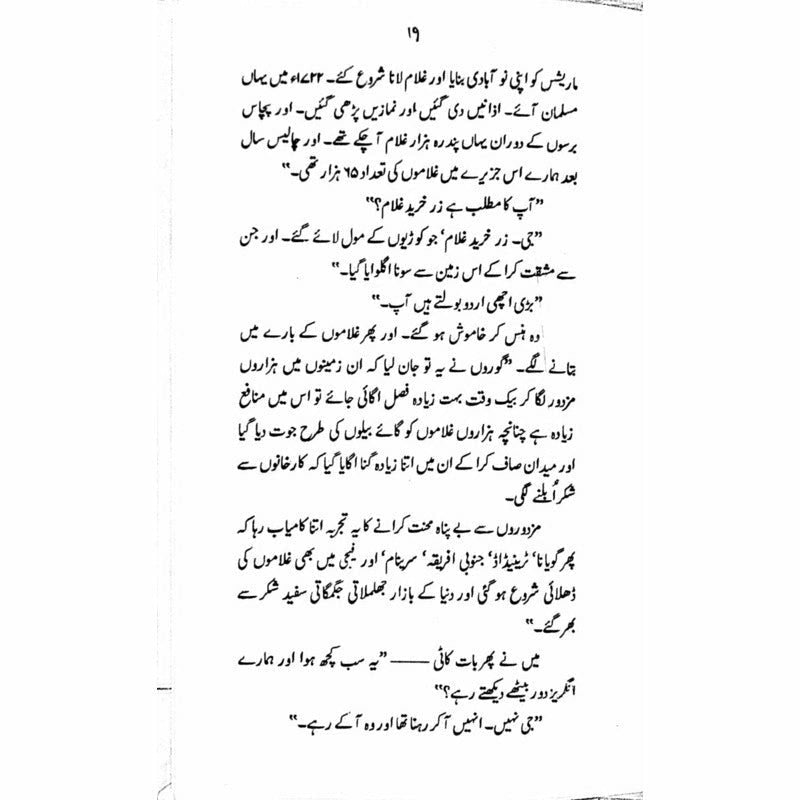 ۱۹
ماریشس کو اپنی نو آبادی بنایا اور غلام لانا شروع کئے۔ ۱۷۲۲ء میں یہاں
مسلمان آئے۔ اذانیں دی گئیں اور نمازیں پڑھی گئیں۔ اور پچاس
برسوں کے دوران یہاں پندرہ ہزار غلام آ چکے تھے۔ اور چالیس سال
بعد ہمارے اس جزیرے میں غلاموں کی تعداد ۶۵ ہزار تھی۔“
”آپ کا مطلب ہے زر خرید غلام؟“
”جی۔ زر خرید غلام‘ جو کوڑیوں کے مول لائے گئے۔ اور جن
سے مشقت کرا کے اس زمین سے سونا اگلوایا گیا۔“
”بڑی اچھی اردو بولتے ہیں آپ۔“
وہ ہنس کر خاموش ہو گئے۔ اور پھر غلاموں کے بارے میں
بتانے لگے۔ ”گوروں نے یہ تو جان لیا کہ ان زمینوں میں ہزاروں
مزدور لگا کر بیک وقت بہت زیادہ فصل اگائی جائے تو اس میں منافع
زیادہ ہے چنانچہ ہزاروں غلاموں کو گائے بیلوں کی طرح جوت دیا گیا
اور میدان صاف کرا کے ان میں اتنا زیادہ گنا اگایا گیا کہ کارخانوں سے
شکر اُبلنے لگی۔
مزدوروں سے بے پناہ محنت کرانے کا یہ تجربہ اتنا کامیاب رہا کہ
پھر گویانا‘ ٹرینیڈاڈ‘ جنوبی افریقہ‘ سرینام‘ اور فیجی میں بھی غلاموں کی
ڈھلائی شروع ہو گئی اور دنیا کے بازار جھلملاتی جگمگاتی سفید شکر سے
بھر گئے۔“
میں نے پھر بات کاٹی ——— ”یہ سب کچھ ہوا اور ہمارے
انگریز دور بیٹھے دیکھتے رہے؟“
”جی نہیں۔ انہیں آ کر رہنا تھا اور وہ آ کے رہے۔“